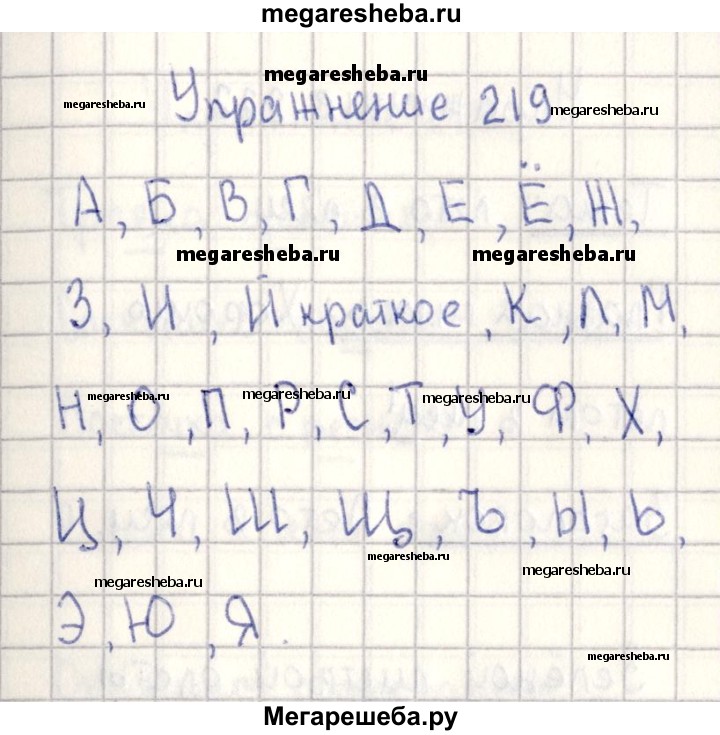 megaresheba.ru
megaresheba.ru
megaresheba.ru
Упражнение 219
megaresheba.ru
А, Б, В, Г, Д, Е, Ё, Ж,
megaresheba.ru
megaresheba.ru
З, И, Й краткое, К, Л, М,
megaresheba.ru
megaresheba.ru
megaresheba.ru
Н, О, П, Р, С, Т, У, Ф, Х,
Ц, Ч, Ш, Щ, Ъ, Ы, Ь,
megaresheba.ru
megaresheba.ru
megaresheba.ru
Э, Ю, Я.
megaresheba.ru
Мегарешеба.ру